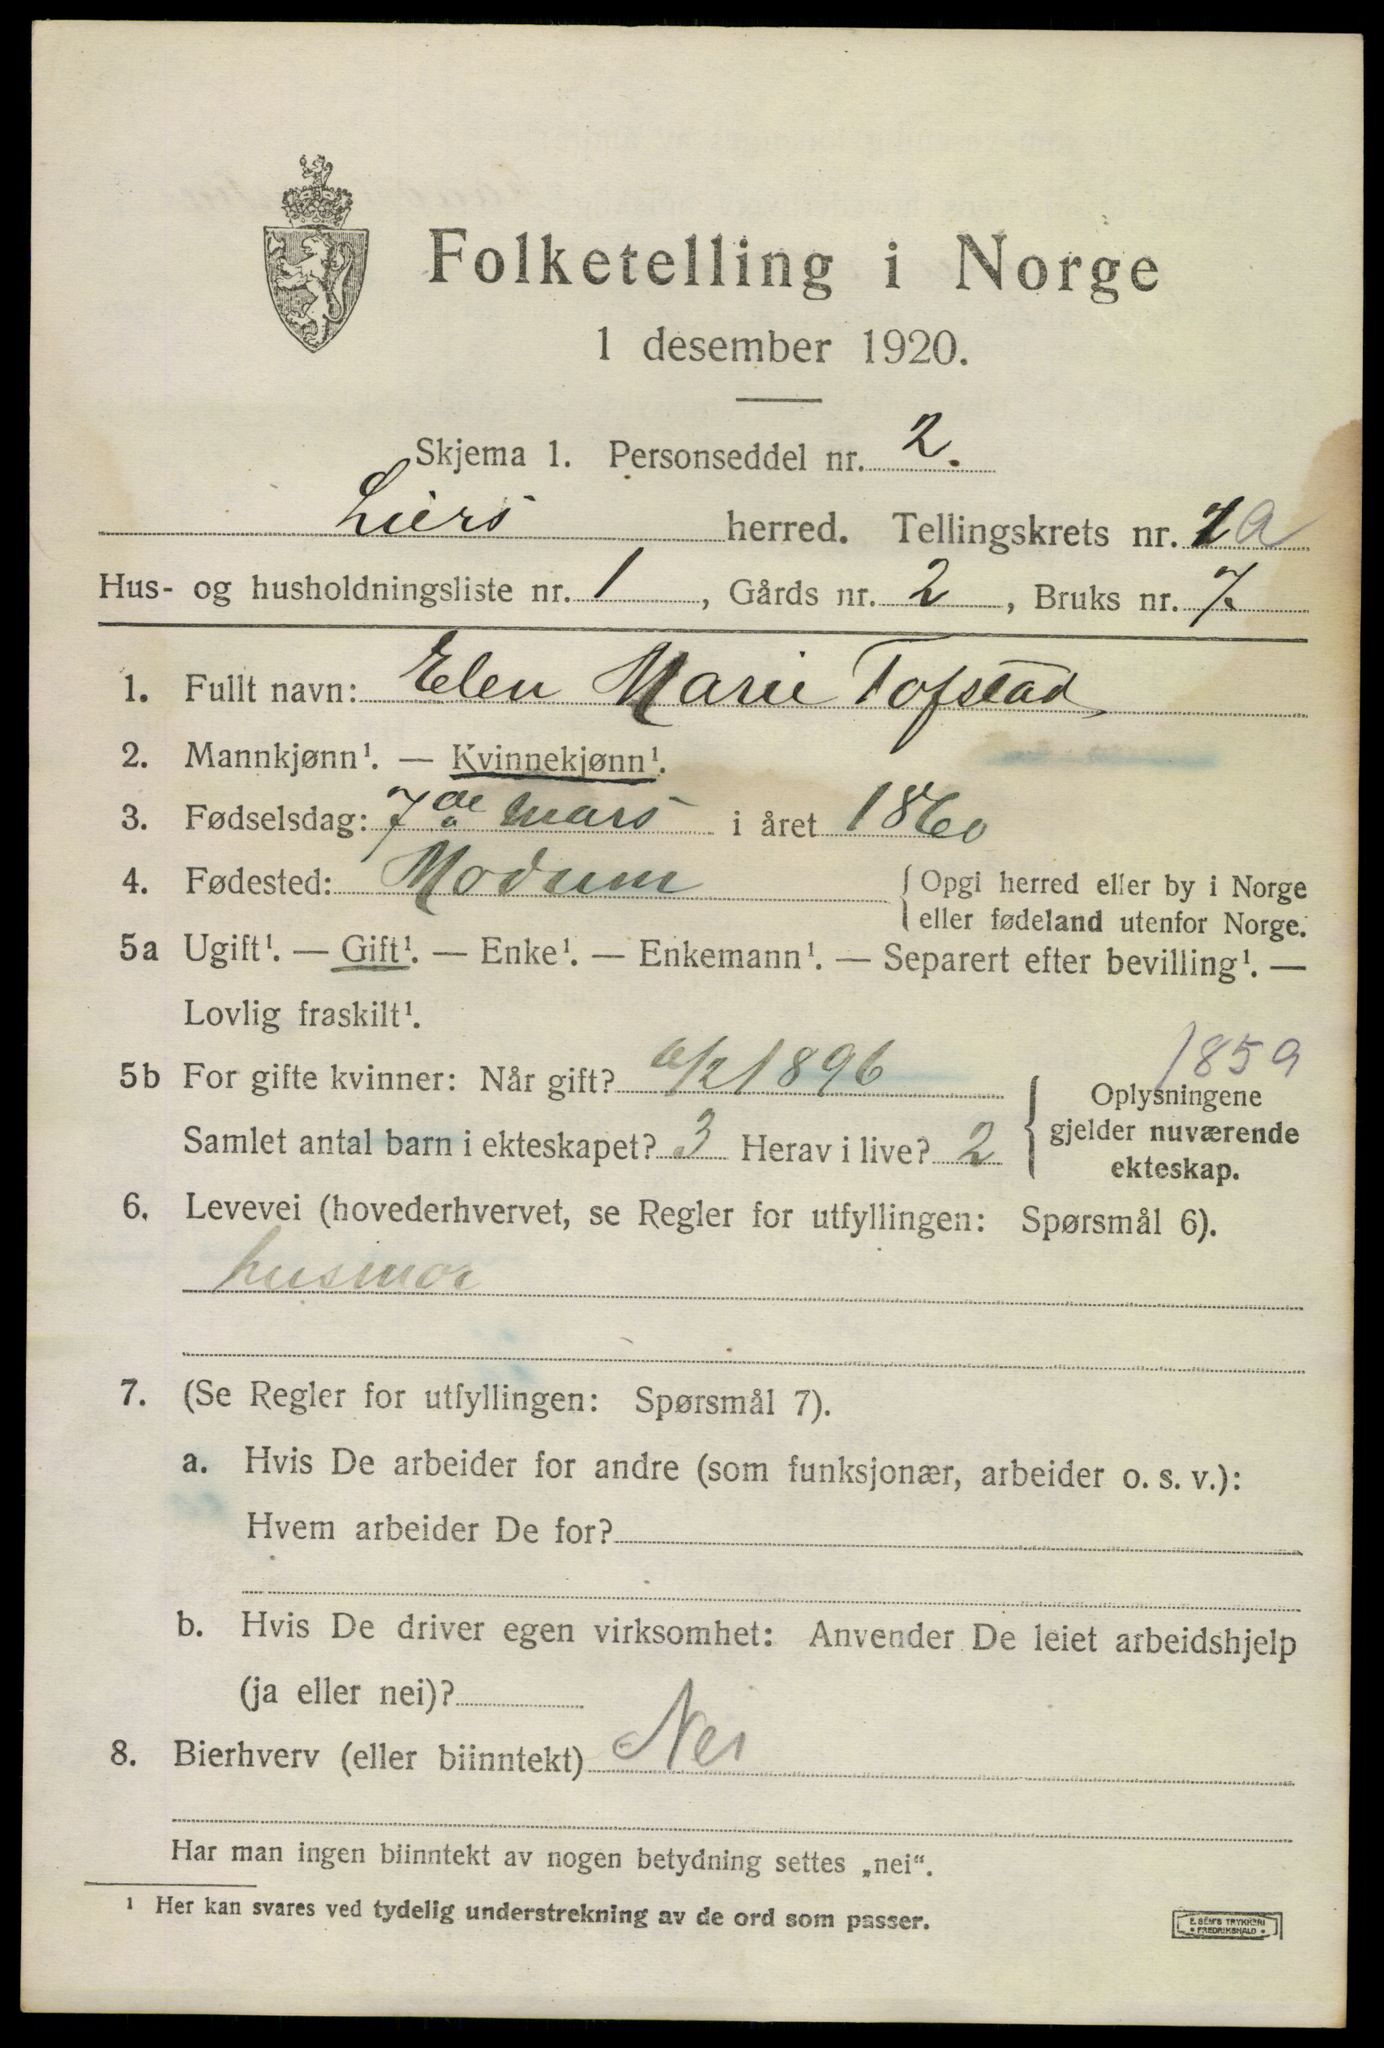 Folketelling i Norge
1 desember 1920.
Skjema 1. Personseddel nr. 2.
Liers herred. Tellingskrets nr. 1a
Hus- og husholdningsliste nr. 1, Gårds nr. 2, Bruks nr. 7
1. Fullt navn: Elen Marie Tofstad
2. Mannkjønn¹. — Kvinnekjønn¹.
3. Fødselsdag: 7de mars i året 1860
4. Fødested: Modum {Opgi herred eller by i Norge
eller fødeland utenfor Norge.
5a Ugift¹. — Gift¹. — Enke¹. — Enkemann¹. — Separert efter bevilling¹. —
Lovlig fraskilt¹.
1859
5b For gifte kvinner: Når gift? 6/2 1896
Samlet antal barn i ekteskapet? 3 Herav i live? 2
{Oplysningene
gjelder nuværende
ekteskap.
6. Levevei (hovederhvervet, se Regler for utfyllingen: Spørsmål 6).
husmor
7. (Se Regler for utfyllingen: Spørsmål 7).
a. Hvis De arbeider for andre (som funksjonær, arbeider o. s. v.):
Hvem arbeider De for?
b. Hvis De driver egen virksomhet: Anvender De leiet arbeidshjelp
(ja eller nei)?
8. Bierhverv (eller biinntekt) Nei
Har man ingen biinntekt av nogen betydning settes „nei“.
¹ Her kan svares ved tydelig understrekning av de ord som passer.
E. SEM'S TRYKKERI
• FREDRIKSHALD •